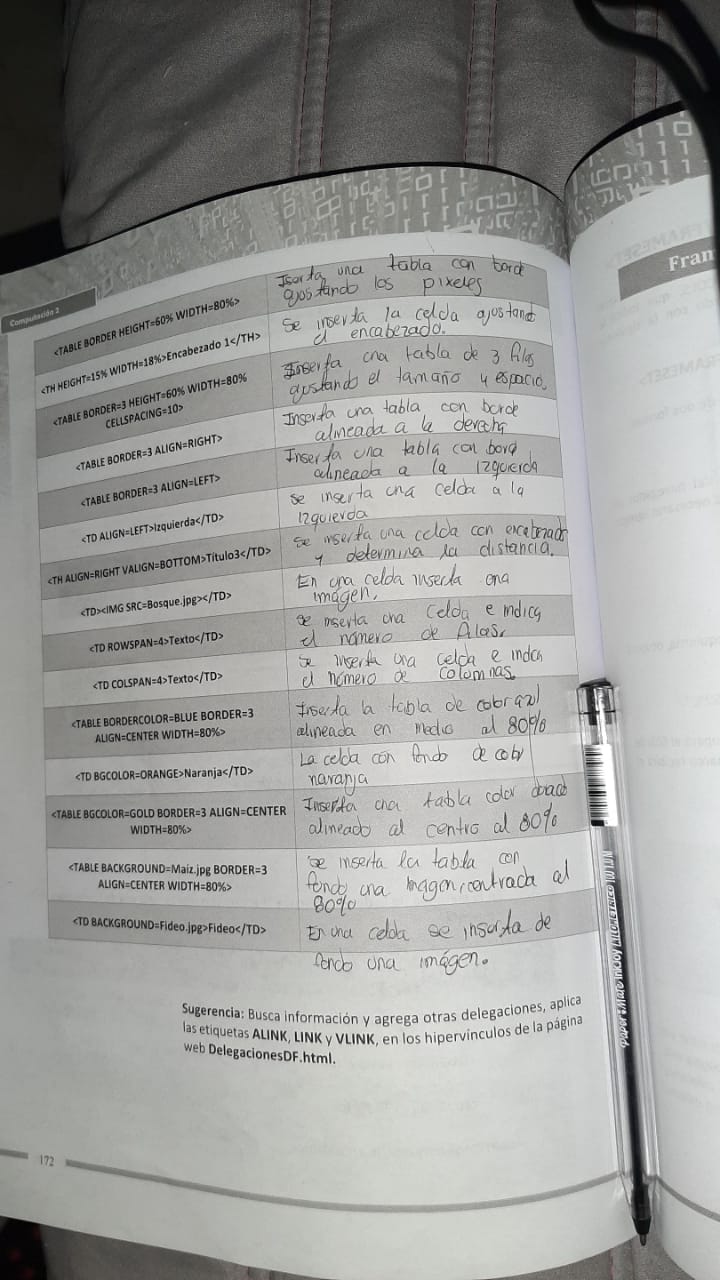 Computación 2
<TABLE BORDER HEIGHT=60% WIDTH=80%>
Iserta una tabla con borde
ajostando los pixeles
<TH HEIGHT=15% WIDTH=18%>Encabezado 1</TH>
Se inserta la celda ajostand
el encabezado.
<TABLE BORDER=3 HEIGHT=60% WIDTH=80%
CELLSPACING=10>
Inserta una tabla de 3 filas
ajustando el tamaño y espacio.
<TABLE BORDER=3 ALIGN=RIGHT>
Inserta una tabla con borde
alineada a la derecha
<TABLE BORDER=3 ALIGN=LEFT>
Inserta una tabla con bord
alineada a la Izquierda
<TD ALIGN=LEFT>Izquierda</TD>
se inserta una celda a la
Izquierda
<TH ALIGN=RIGHT VALIGN=BOTTOM>Título3</TH>
Se inserta una celda con encabezado
y determina la distancia.
<TD><IMG SRC=Bosque.jpg></TD>
En una celda inserta una
imágen.
<TD ROWSPAN=4>Texto</TD>
se inserta una celda e indica
el número de filas.
<TD COLSPAN=4>Texto</TD>
Se inserta una celda e indica
el número de columnas.
<TABLE BORDERCOLOR=BLUE BORDER=3
ALIGN=CENTER WIDTH=80%>
Inserta la tabla de
alineada en medio al 80%
<TD BGCOLOR=ORANGE>Naranja</TD>
La celda con fondo de
naranja
<TABLE BGCOLOR=GOLD BORDER=3 ALIGN=CENTER
WIDTH=80%>
Inserta una tabla color
alineado al centro al 80%
<TABLE BACKGROUND=Maíz.jpg BORDER=3
ALIGN=CENTER WIDTH=80%>
se inserta la tabla con
fondo una imagen, al
80%
<TD BACKGROUND=Fideo.jpg>Fideo</TD>
En una celda se inserta de
fondo una imágen.
Sugerencia: Busca información y agrega otras delegaciones, aplica
las etiquetas ALINK, LINK y VLINK, en los hipervínculos de la página
web DelegacionesDF.html.
172
Fran
Paper Mate InkJoy KILOMETRICO